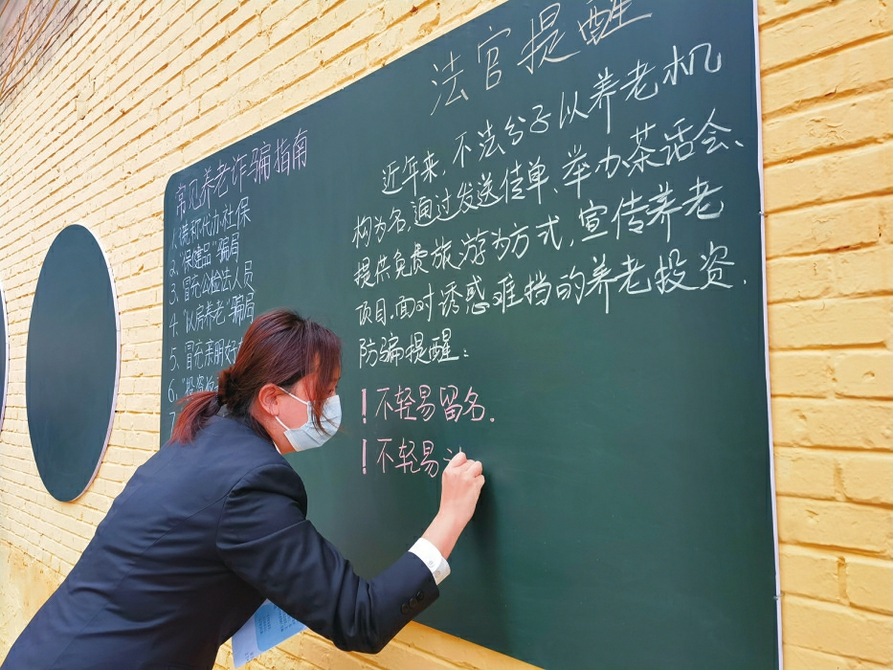 常见养老诈骗指南
1.谎称代办社保
2."保健品"骗局
3.冒充公检法人员
4."以房养老"骗局
5.冒充亲朋好
6."投资
法官提醒
近年来,不法分子以养老机
构为名,通过发送传单、举办茶话会、
提供免费旅游为方式,宣传养老
项目.面对诱惑难挡的养老投资.
防骗提醒:
!不轻易留名.
!不轻易